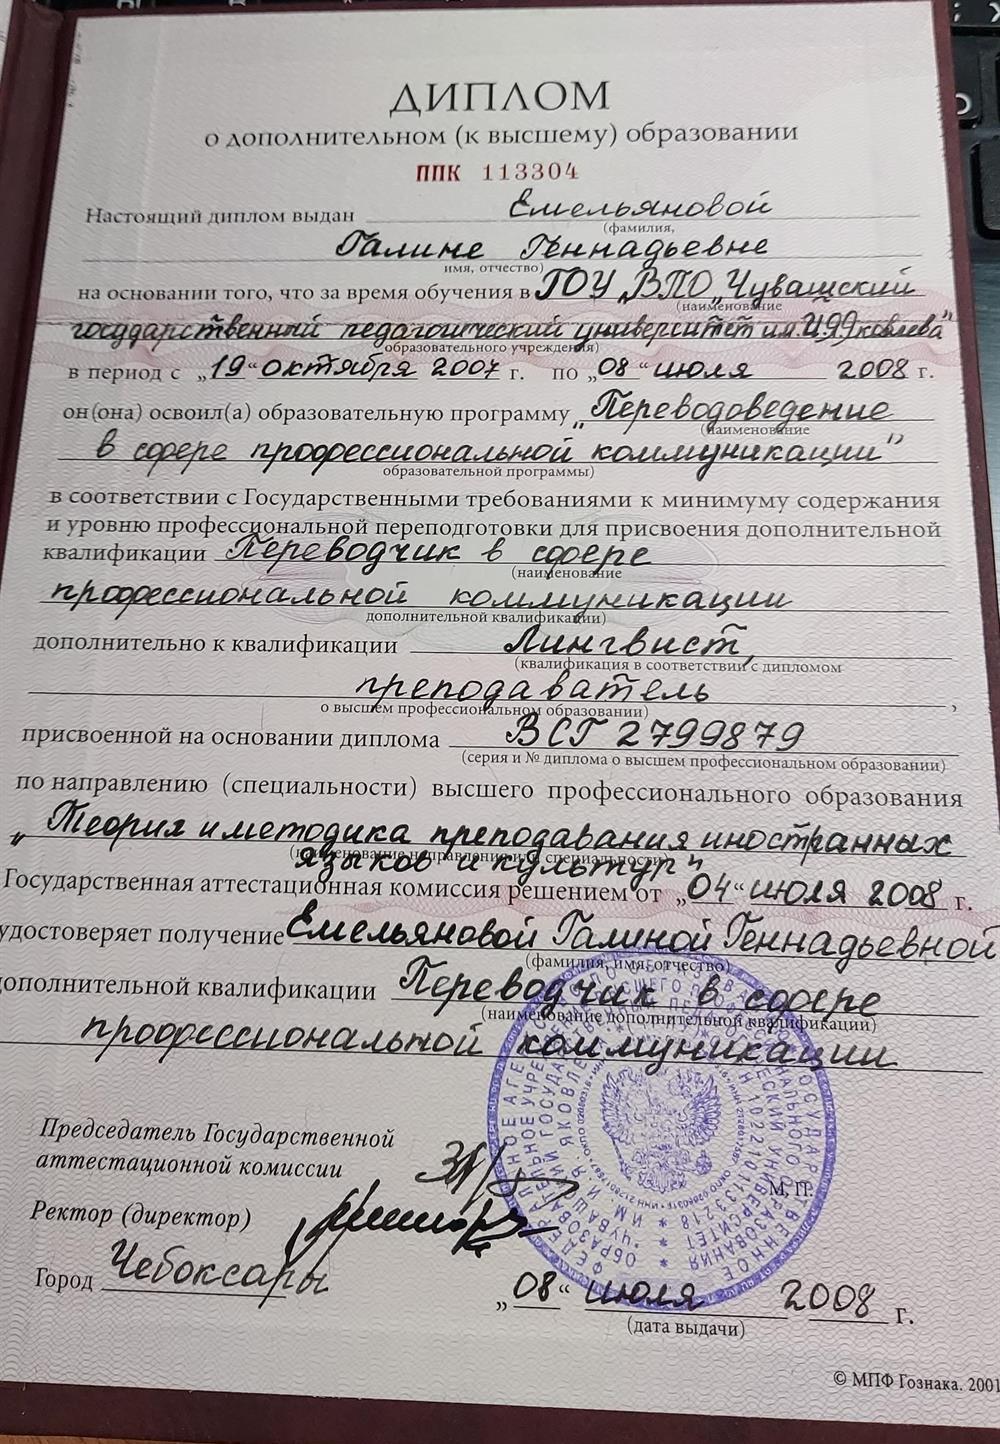 ДИПЛОМ
о дополнительном (к высшему) образовании
ППК 113304
Настоящий диплом выдан Емельяновой
(фамилия,
Галине Геннадьевне
имя, отчество)
на основании того, что за время обучения в ГОУ ВПО „Чувашский
(наименование
государственный педагогический университет им. И.Я.Яковлева"
образовательного учреждения)
в период с „19" октября 2007 г. по „08" июля 2008 г.
он(она) освоил(а) образовательную программу „Переводоведение
(наименование
в сфере профессиональной коммуникации"
образовательной программы)
в соответствии с Государственными требованиями к минимуму содержания
и уровню профессиональной переподготовки для присвоения дополнительной
квалификации Переводчик в сфере
(наименование
профессиональной коммуникации
дополнительной квалификации)
дополнительно к квалификации Лингвист,
(квалификация в соответствии с дипломом
преподаватель,
о высшем профессиональном образовании)
присвоенной на основании диплома ВСГ 2799879
(серия и № диплома о высшем профессиональном образовании)
по направлению (специальности) высшего профессионального образования
„Теория и методика преподавания иностранных
(наименование направления или специальности)
языков и культур"
Государственная аттестационная комиссия решением от „04" июля 2008 г.
удостоверяет получение Емельяновой Галиной Геннадьевной
(фамилия, имя, отчество)
дополнительной квалификации Переводчик в сфере
(наименование дополнительной квалификации)
профессиональной коммуникации
Председатель Государственной
аттестационной комиссии
М. П.
Ректор (директор)
Город Чебоксары
„08" июля 2008 г.
(дата выдачи)
© МПФ Гознака. 2001